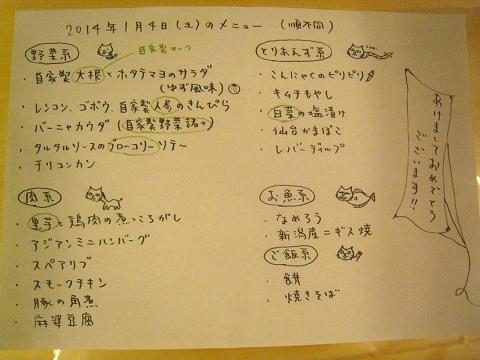 2014年1月4日(土)のメニュー (順不同)
野菜系
自家製マーク
・自家製大根とホタテマヨのサラダ
(ゆず風味)
・レンコン、ゴボウ、自家製人参のきんぴら
・バーニャカウダ (自家製野菜諸々)
・タルタルソースのブロッコリーソテー
・チリコンカン
肉系
・里芋と鶏肉の煮ころがし
・アジアンミニハンバーグ
・スペアリブ
・スモークチキン
・豚の角煮
・麻婆豆腐
とりあえず系
・こんにゃくのピリピリ
・キムチもやし
・白菜の塩漬け
・仙台かまぼこ
・レバーディップ
お魚系
・なめろう
・新潟産ニギス焼
ご飯系
・餅
・焼きそば
あけましておめでとう
ございます!!